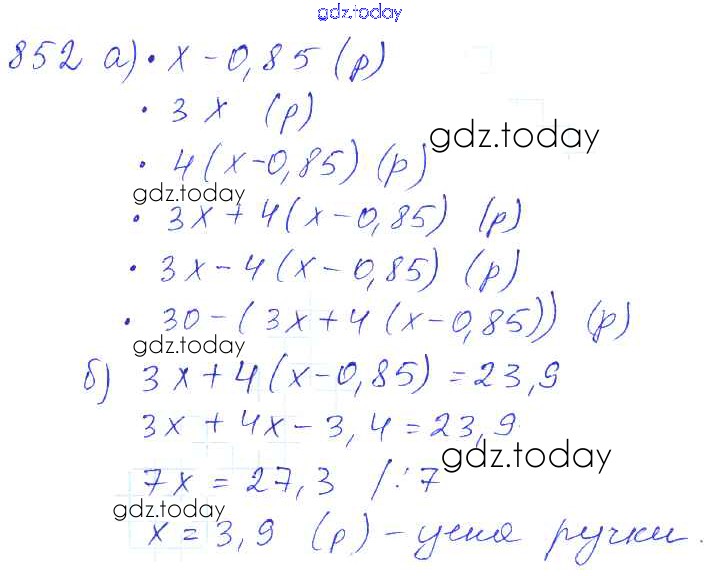 gdz.today
852 а) • x - 0,85 (р)
• 3x (р)
gdz.today
• 4(x-0,85) (р)
gdz.today
• 3x + 4(x-0,85) (р)
• 3x - 4(x-0,85) (р)
• 30-(3x+4(x-0,85)) (р)
gdz.today
б) 3x + 4(x-0,85) = 23,9
3x + 4x - 3,4 = 23,9
gdz.today
7x = 27,3 /:7
gdz.today
x = 3,9 (р) - цена ручки.